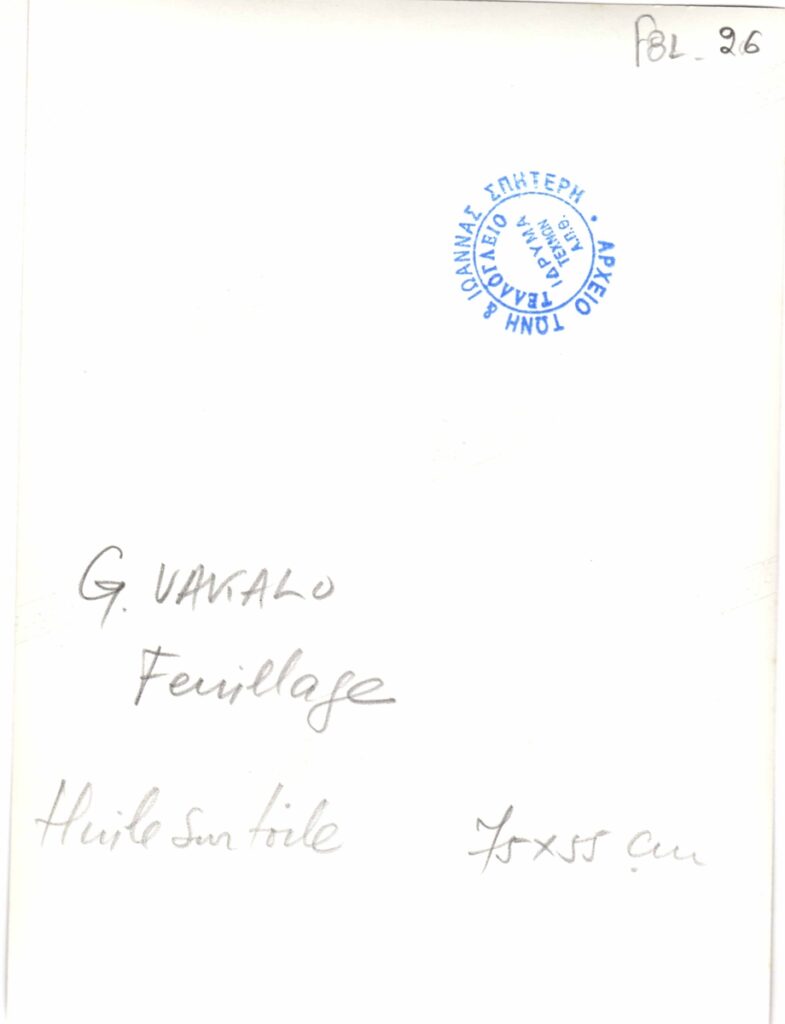 FBL - 26
ΑΡΧΕΙΟ ΤΩΝΗ & ΙΩΑΝΝΑΣ ΣΠΗΤΕΡΗ •
ΤΕΛΛΟΓΛΕΙΟ
ΙΔΡΥΜΑ
ΤΕΧΝΩΝ
Α.Π.Θ.
G. VAKALO
Feuillage
Huile sur toile 75x55 cm